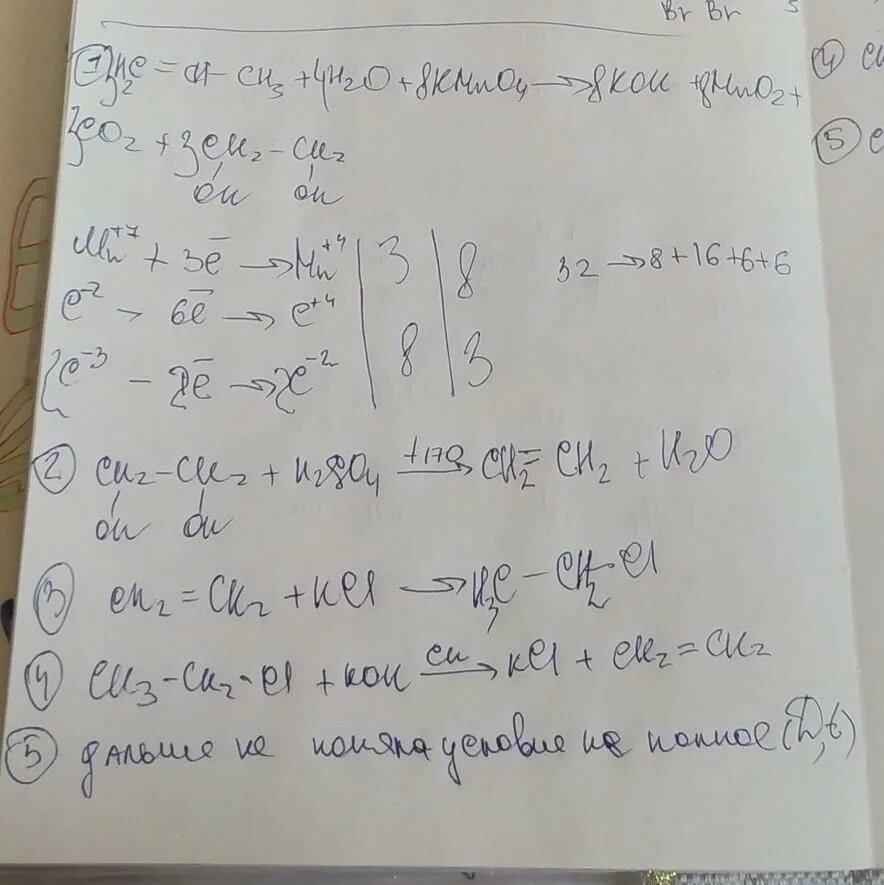 Br Br
5
① 3H₂C = CH – CH₃ + 4H₂O + 8KMnO₄ → 8KOH + 8MnO₂ +
3CO₂ + 3CH₂ – CH₂
OH OH
Mn⁺⁷ + 3ē → Mn⁺⁴ | 3 | 8
C⁻² → 6ē → C⁺⁴
2C⁻³ – 2ē → 2C⁻² | 8 | 3
32 → 8 + 16 + 6 + 6
② CH₂ – CH₂ + H₂SO₄ +170→ CH₂ = CH₂ + H₂O
OH OH
③ CH₂ = CH₂ + HCl → H₃C – CH₂ – Cl
④ CH₃ – CH₂ – Cl + KOH сп→ KCl + CH₂ = CH₂
⑤ дальше не поняла условие не полное (D, t)
④ CH
⑤ C